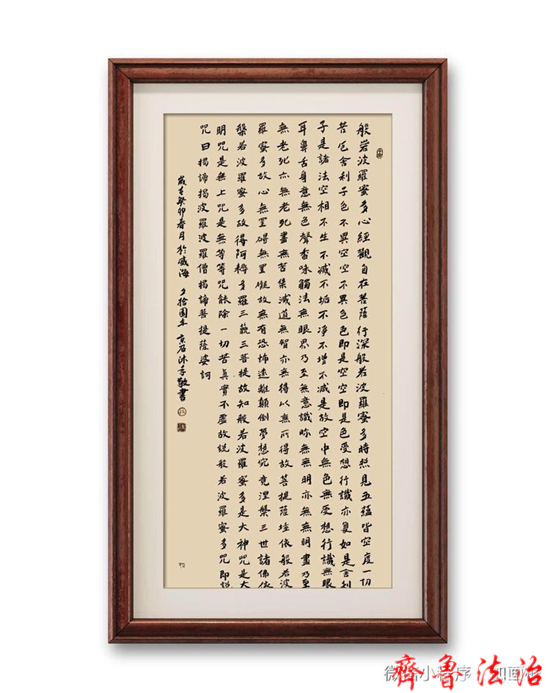 般若波羅蜜多心經觀自在菩薩行深般若波羅蜜多時照見五蘊皆空度一切
苦厄舍利子色不異空空不異色色即是空空即是色受想行識亦复如是舍利
子是諸法空相不生不滅不垢不净不增不減是故空中無色無受想行識無眼
耳鼻舌身意無色聲香味觸法無眼界乃至無意識界無無明亦無無明盡乃至
無老死亦無老死盡無苦集滅道無智亦無得以無所得故菩提薩埵依般若波
羅蜜多故心無罣礙無罣礙故無有恐怖遠離顛倒夢想究竟涅槃三世諸佛依
般若波羅蜜多故得阿耨多羅三藐三菩提故知般若波羅蜜多是大神咒是大
明咒是無上咒是無等等咒能除一切苦真實不虛故說般若波羅蜜多咒即說
咒曰揭諦揭波羅波羅僧揭諦菩提薩婆訶
歲在癸卯春月於威海夕拾園主京石沐手敬書
微信小程序
齊魯法治